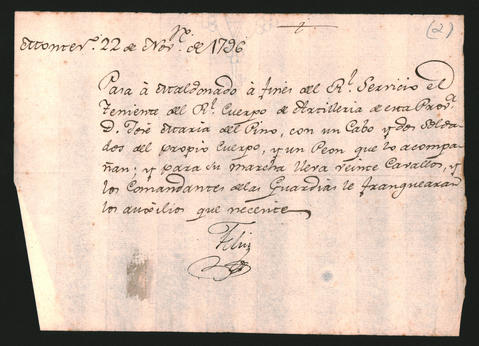 (2)
Montev.º 22 de Nov.e de 1796
Pasa à Maldonado à fines del R.l Servicio el
Teniente del R.l Cuerpo de Artilleria de esta Prov.a
D. José Maria del Pino, con un Cabo y dos Solda-
dos del propio Cuerpo, y un Peon que lo acompa-
ñan; y para su marcha lleva veinte Cavallos, y
los Comandantes de las Guardias le franquearan
los auxilios que necesite
Feliu